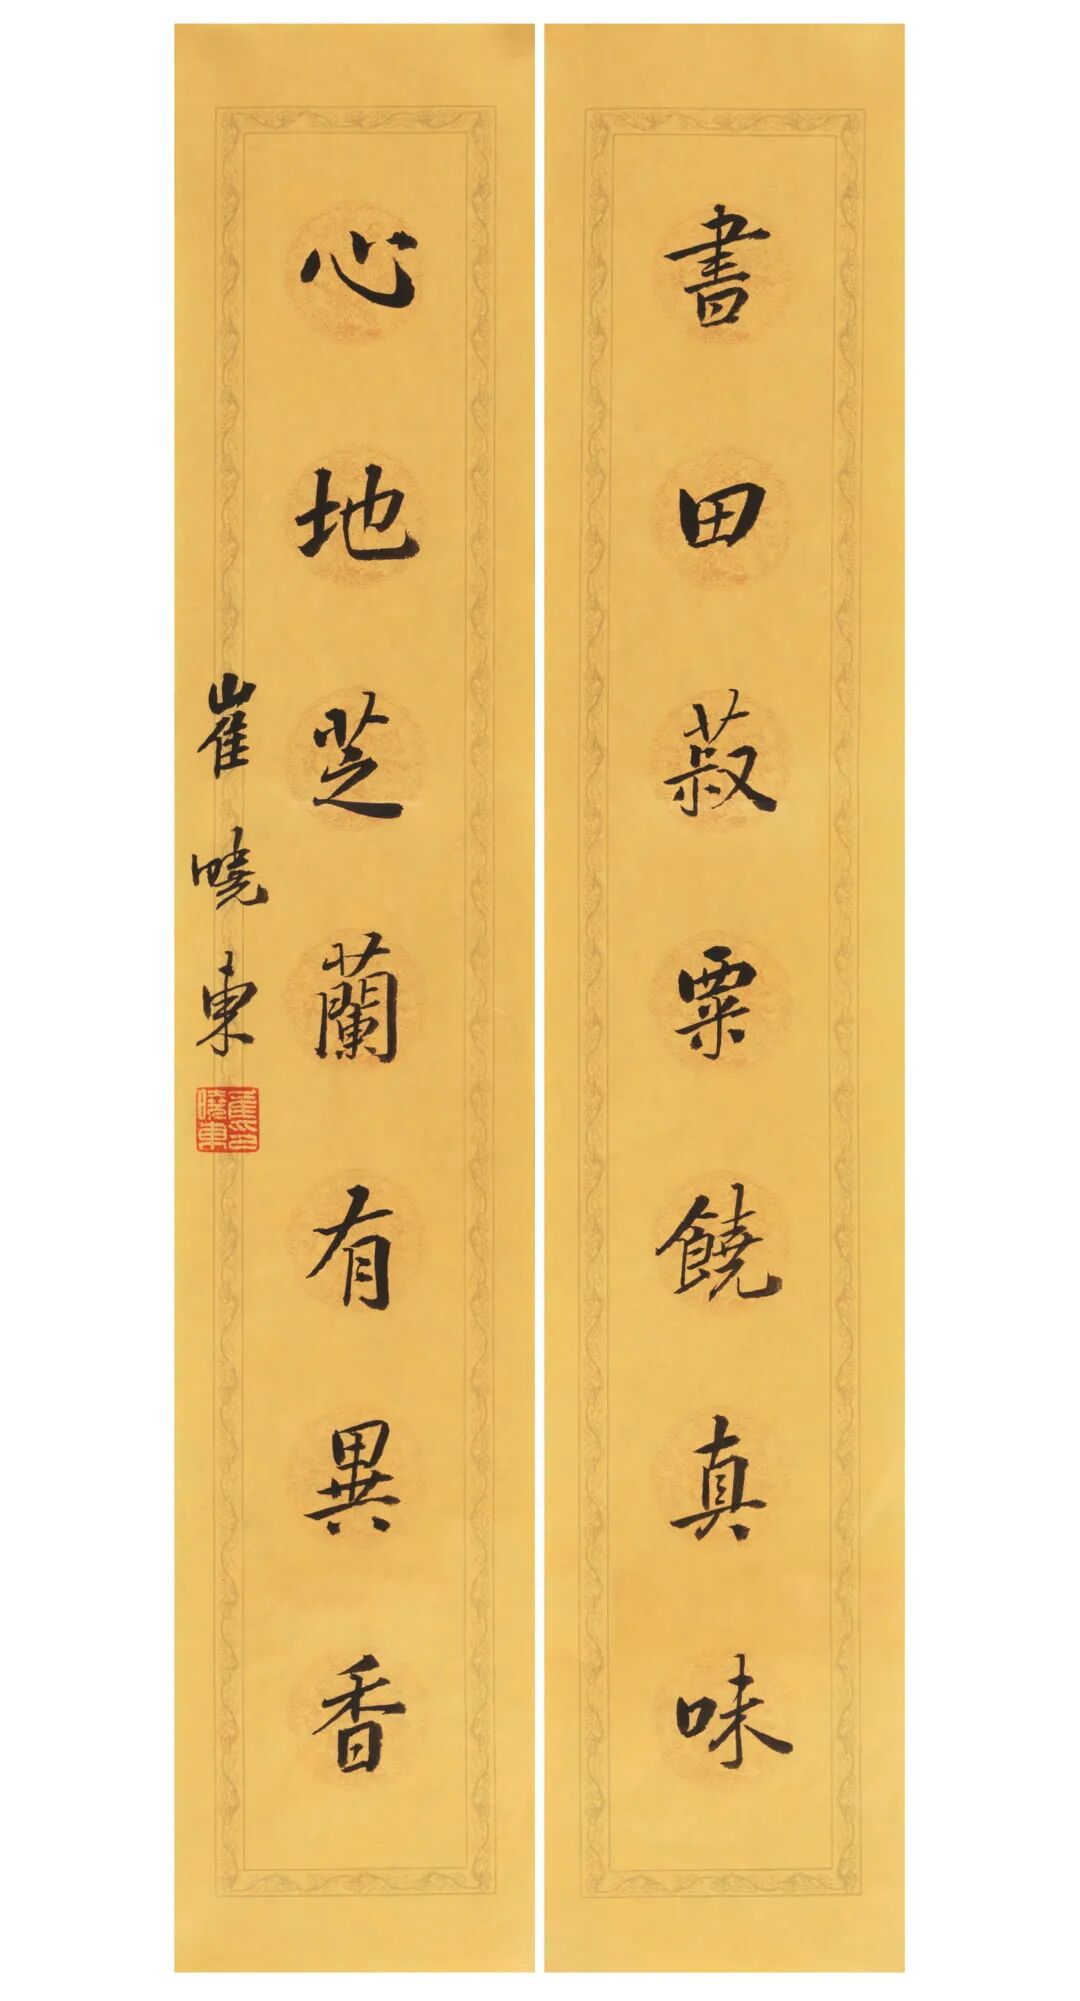 書田菽粟饒真味
心地芝蘭有異香
崔曉東
崔曉東印